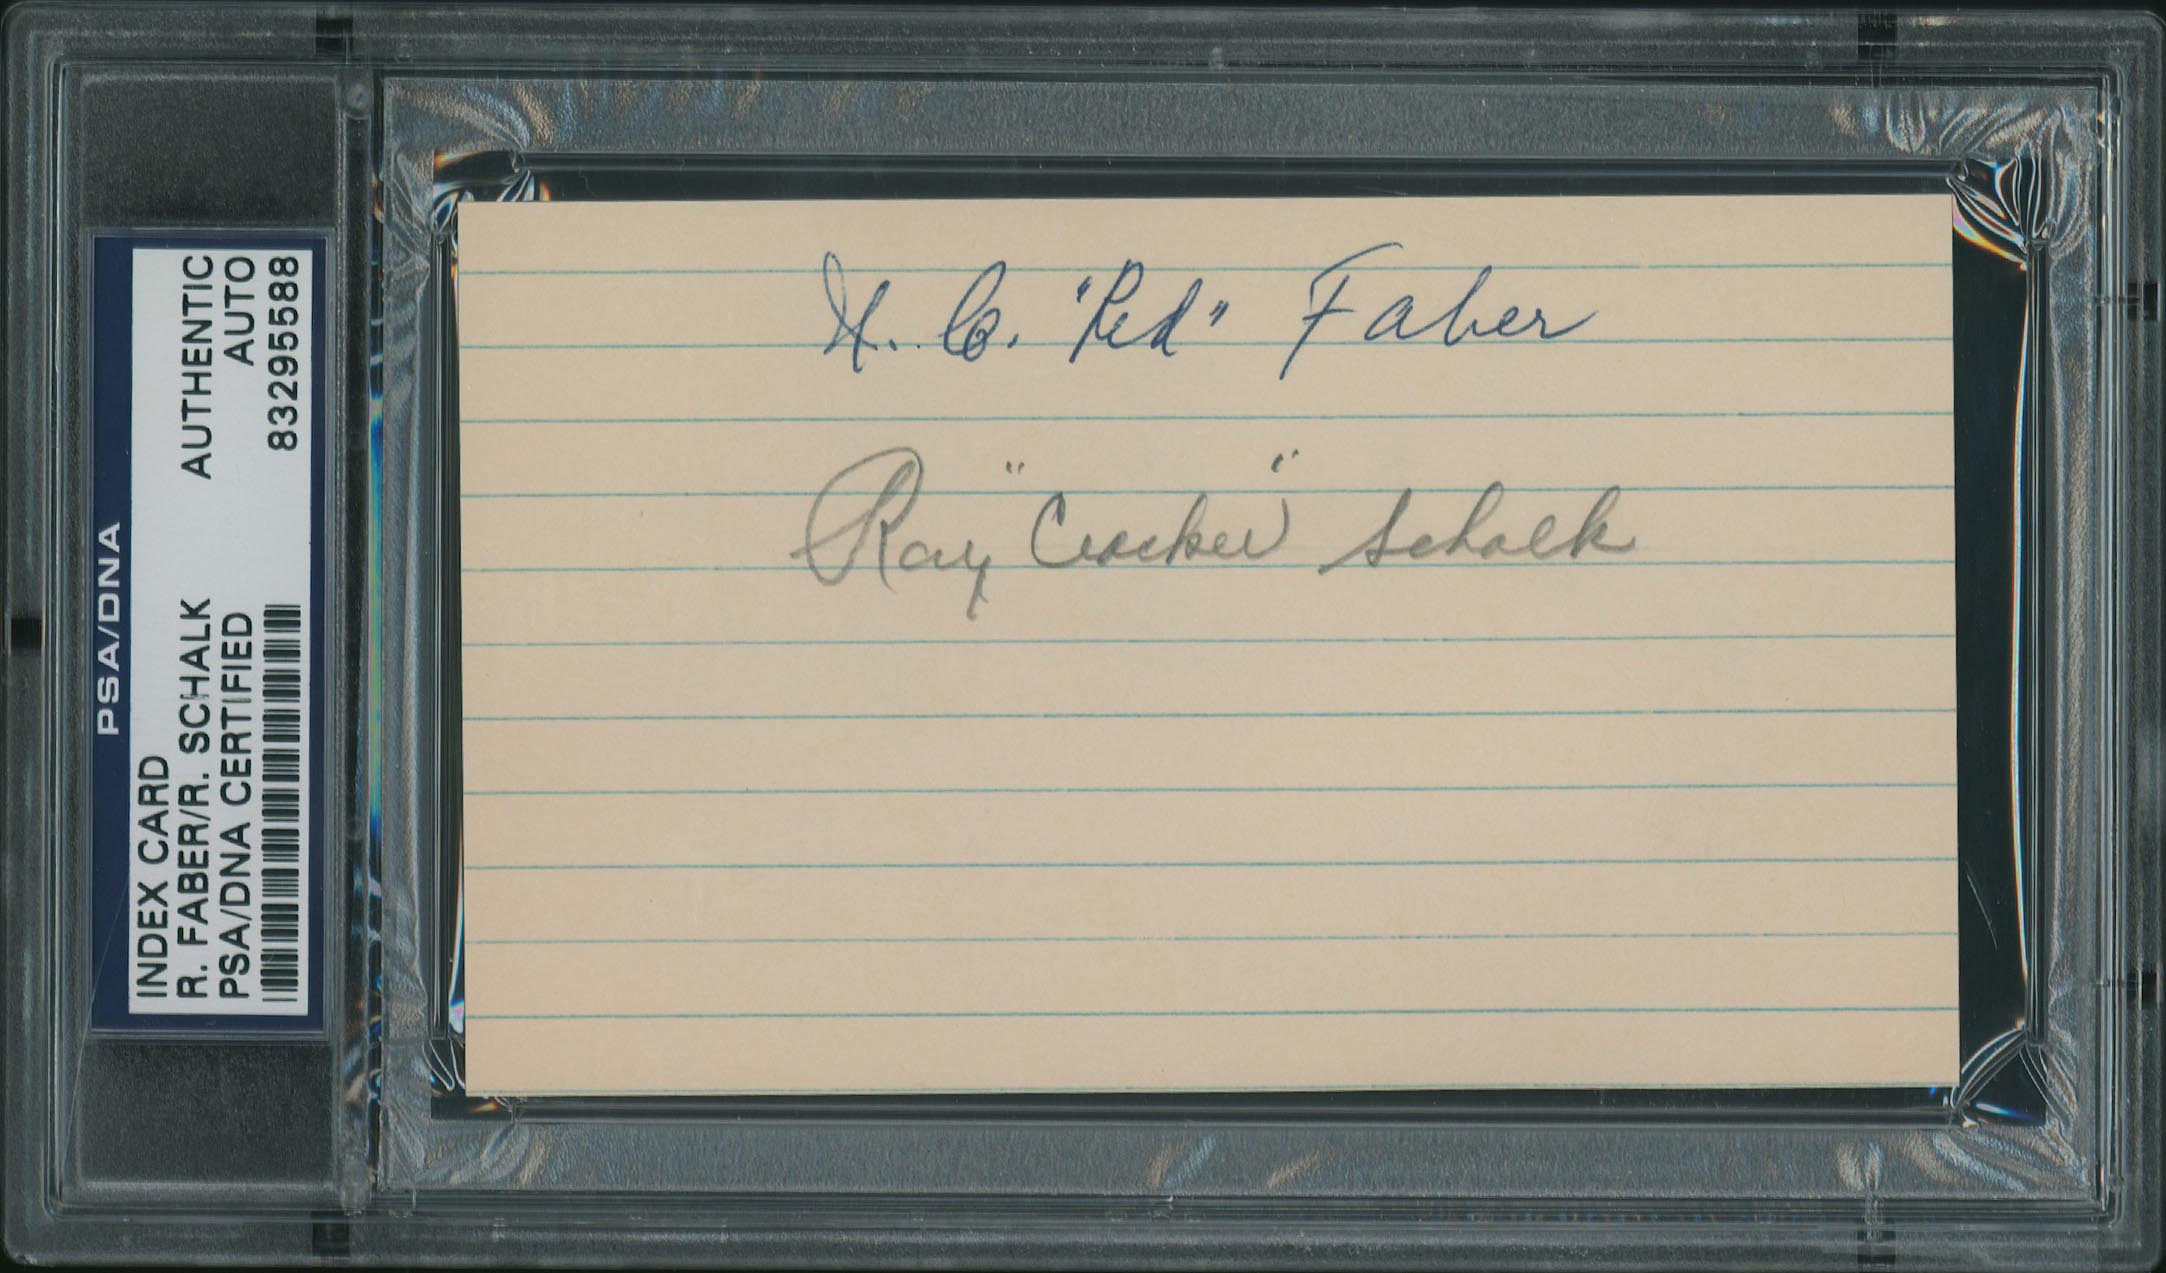 PSA/DNA
INDEX CARD AUTHENTIC
R. FABER/R. SCHALK AUTO
PSA/DNA CERTIFIED 83295588
U. C. "Red" Faber
Ray "Cracker" Schalk